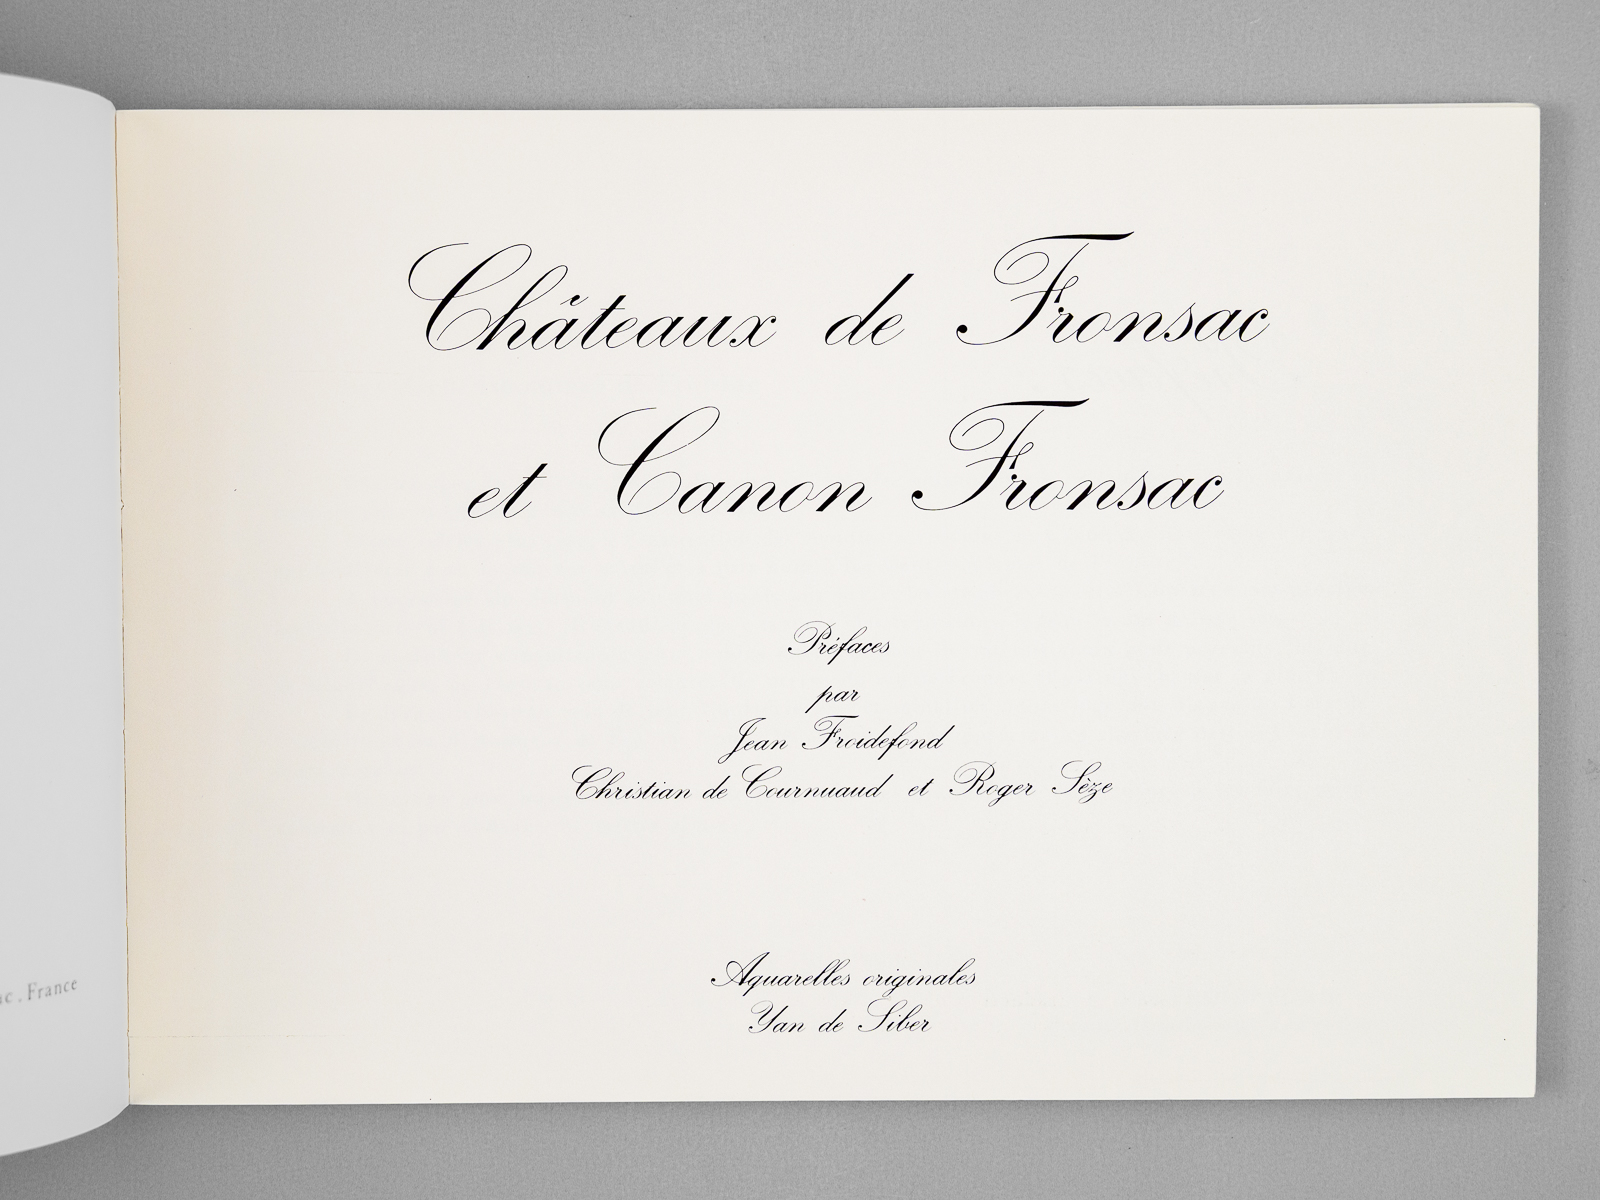 Châteaux de Fronsac
et Canon Fronsac
Préfaces
par
Jean Froidefond
Christian de Cournuaud et Roger Sèze
Aquarelles originales
Yan de Siber
France